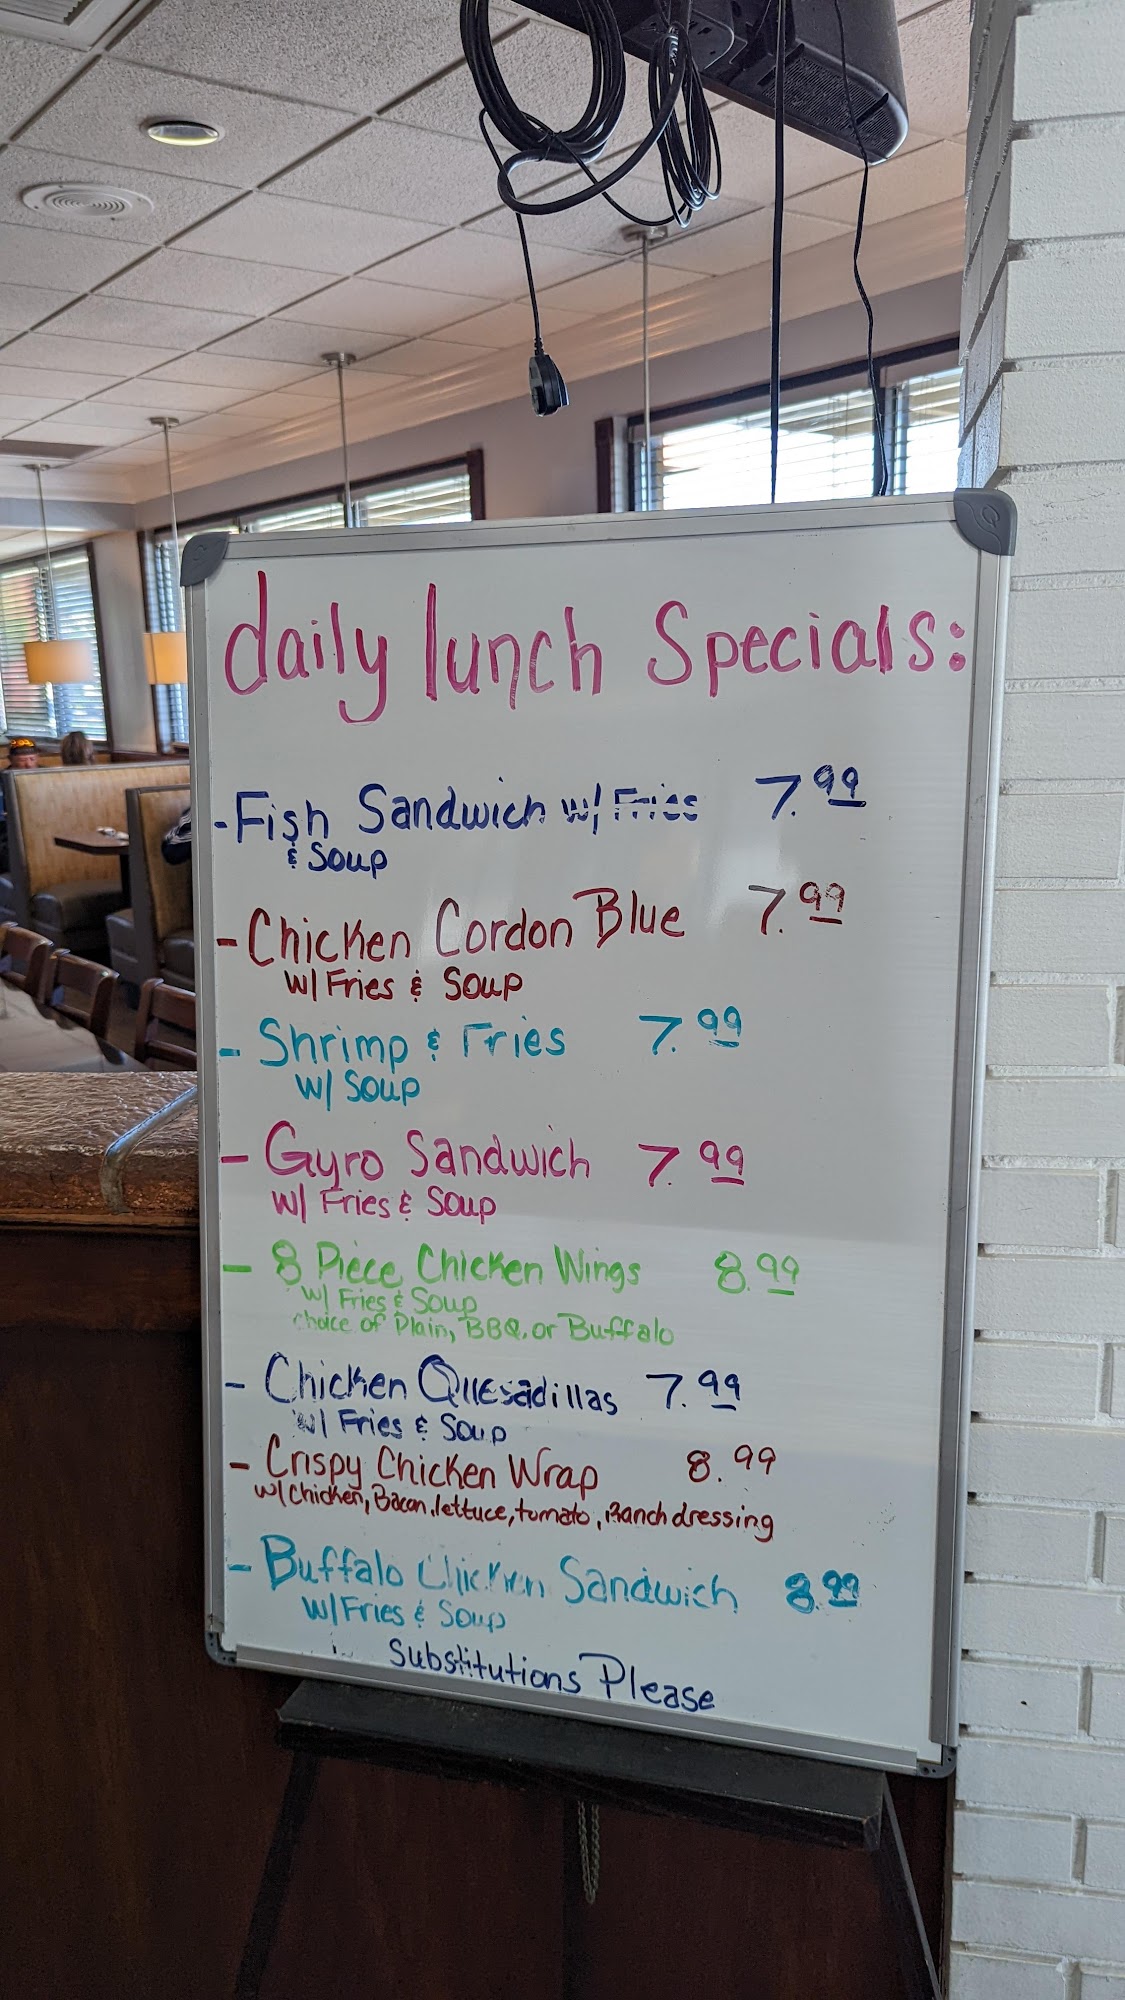 daily lunch Specials:
- Fish Sandwich w/ Fries 7.99
& Soup
- Chicken Cordon Blue 7.99
w/ Fries & Soup
- Shrimp & Fries 7.99
w/ Soup
- Gyro Sandwich 7.99
w/ Fries & Soup
- 8 Piece Chicken Wings 8.99
w/ Fries & Soup
choice of Plain, BBQ, or Buffalo
- Chicken Quesadillas 7.99
w/ Fries & Soup
- Crispy Chicken Wrap 8.99
w/ Chicken, Bacon, lettuce, tomato, Ranch dressing
- Buffalo Chicken Sandwich 8.99
w/ Fries & Soup
Substitutions Please